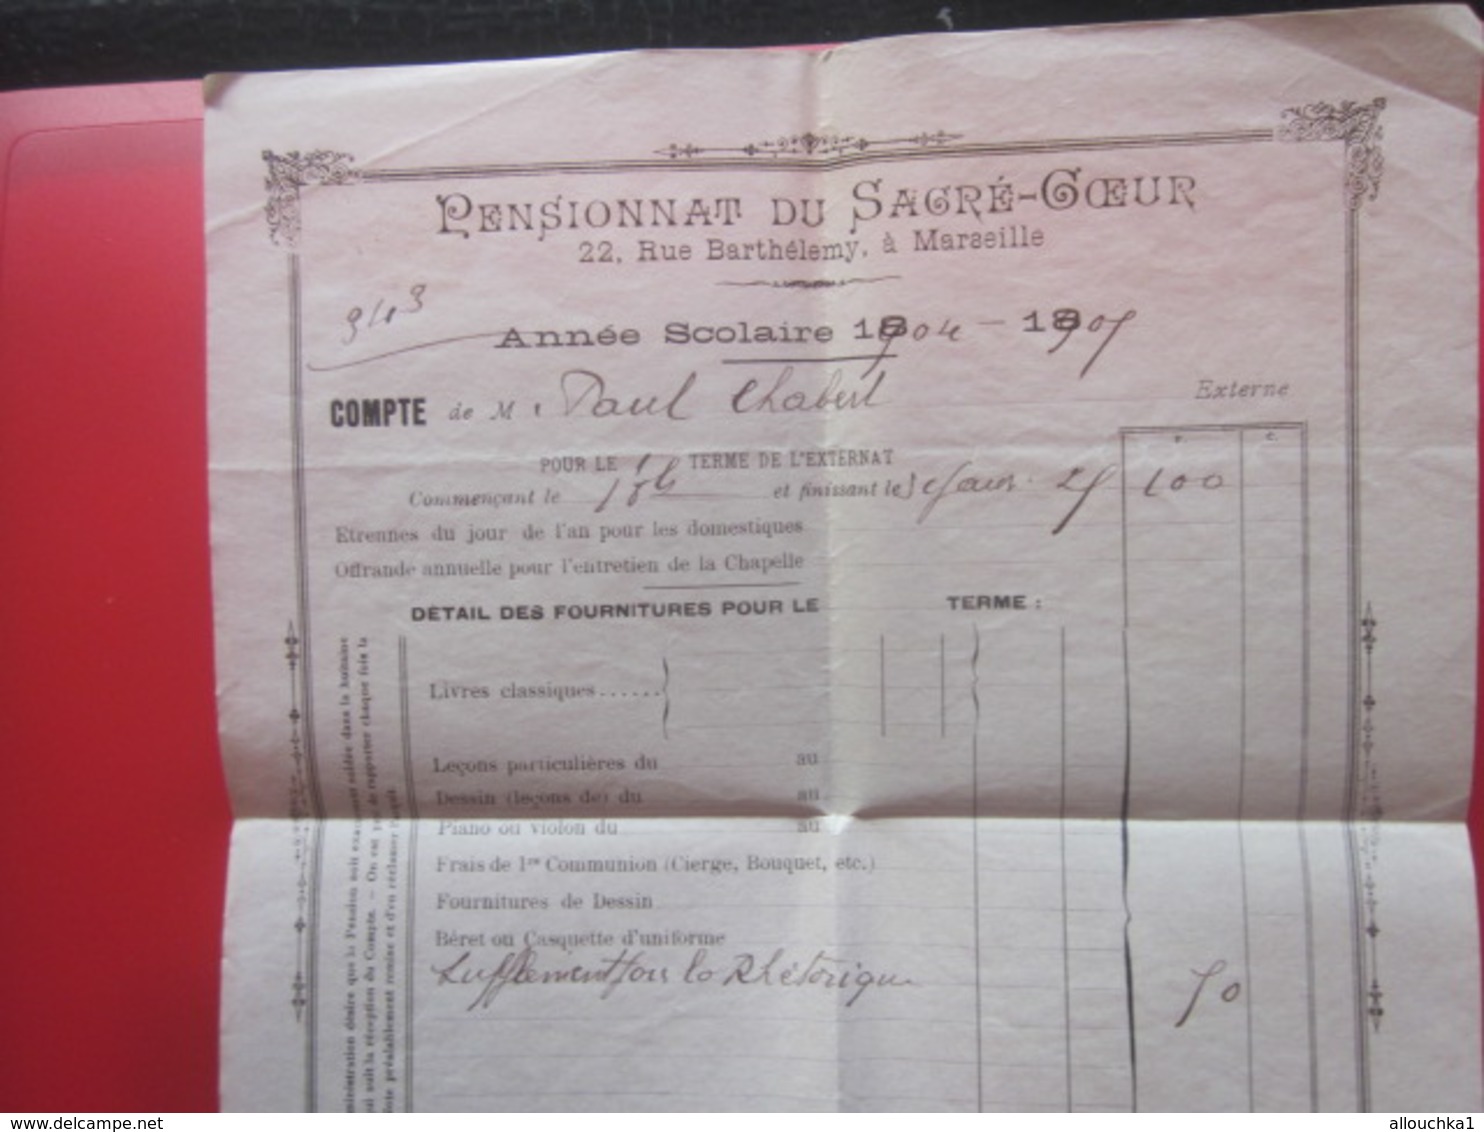 PENSIONNAT DU SACRÉ-CŒUR
22, Rue Barthélemy, à Marseille
943
Année Scolaire 1904 - 1905
COMPTE de M. Paul Chabert Externe
F. C.
POUR LE 1 TERME DE L'EXTERNAT
Commençant le et finissant le Janv. 100
Etrennes du jour de l'an pour les domestiques
Offrande annuelle pour l'entretien de la Chapelle
DÉTAIL DES FOURNITURES POUR LE TERME :
Livres classiques......
Leçons particulières du au
Dessin (leçons de) du au
Piano ou violon du au
Frais de 1re Communion (Cierge, Bouquet, etc.)
Fournitures de Dessin
Béret ou Casquette d'uniforme
Supplément pour la Rhétorique 50
ministration désire que la Pension soit exactement soldée dans la huitaine
qui suit la réception du Compte. — On est prié de rapporter chaque fois la
note préalablement remise et d'en réclamer l'acquit.
delcampe.net
allouchka1